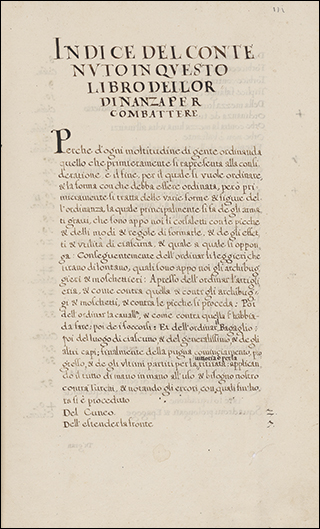 INDICE DEL CONTE
NVTO IN QVESTO
LIBRO DELL'OR
DINANZA PER
COMBATTERE
Perche d'ogni moltitudine di gente ordinanda
quello che primieramente si rapresenta alla consi-
deratione è il fine, per il quale si vuole ordinare,
& la forma con che debba essere ordinata, però pri-
mieramente si tratta delle varie forme & figure del
l'ordinanza, la quale principalmente si fà de gli arma
ti gravi, che sono appo noi li Corsaletti con le picche
& delli modi & regole di formarle, & de gli effet
ti & utilità di ciascuna, & quale a quale si oppon
ga: Conseguentemente dell'ordinar li leggieri che
tirano di lontano, quali sono appo noi gli archibug
gieri & moschettieri: Apresso dell'ordinar l'artigli
eria, & come contra quella, & contr'gli archibug
gi & moschetti, & contra le picche si proceda: Poi
dell'ordinar la cavallᵃ, & come contra quella s'habbia
da fare: poi de i soccorsi: Et dell'ordinar Bagaglio:
poi del luogo di ciascuno & del generalissimo & de gli
altri capi; finalmente della pugna cominciamento, pro
gresso, & de gli ultimi partiti per la ritirata: applican
do il tutto di mano in mano all'uso & bisogno nostro
contra Turchi, & notando gli errori con quali fin'ho
ra si è proceduto
Del Cuneo 2
Dell'estender la fronte